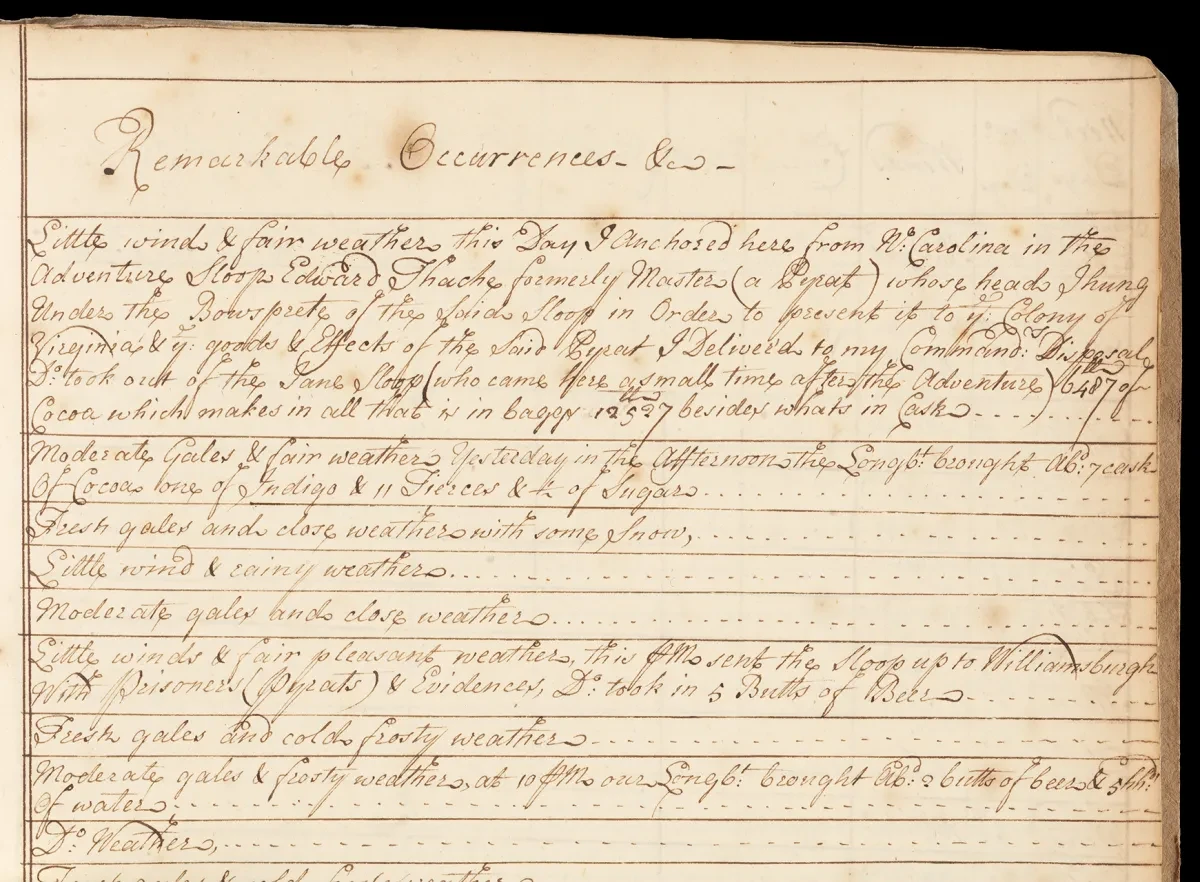 Remarkable Occurrences - &c -
Little wind & fair weather this Day I Anchored here from No. Carolina in the
Adventure Sloop Edward Thache formerly Master (a Pyrat) whose head I hung
Under the Bowsprete of the Said Sloop in Order to present it to ye: Colony of
Virginia & ye: goods & Effects of the Said Pyrat I Deliver'd to my Commandrs: Disposal
Do. took out of the Jane Sloop (who came here a small time after the Adventure) 6487 lb of
Cocoa which makes in all that is in baggs 12527 lb besides whats in Cask
Moderate Gales & fair weather Yesterday in the Afternoon the Longbt: brought Abd: 7 cask
Of Cocoa one of Indigo & 11 Tierces & ½ of Sugar
Fresh gales and close weather with some Snow,
Little wind & rainy weather
Moderate gales and close weather
Little winds & fair pleasant weather, this PM sent the sloop up to Williamsburgh
With Prisoners (Pyrats) & Evidences, Do. took in 5 Butts of Beer
Fresh gales and cold frosty weather
Moderate gales & frosty weather, at 10 our Longbt: brought Abd: 2 butts of beer & 5 hhds:
Of water
Do. Weather,